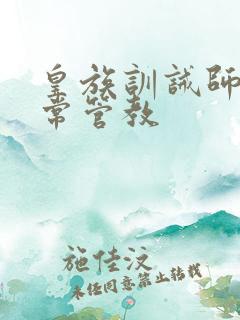 皇族訓誡師日
常管教
施佳汶
未经同意禁止转载